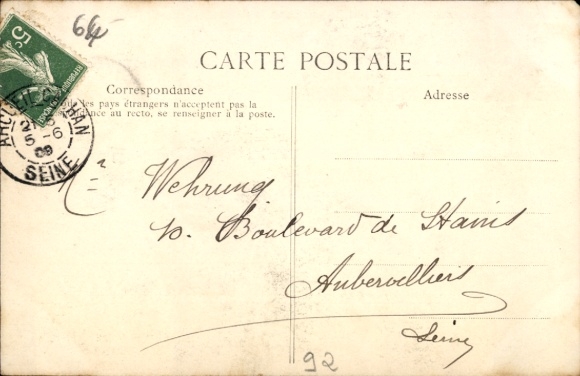 64
5c
CARTE POSTALE
Correspondance
les pays étrangers n'acceptent pas la
au recto, se renseigner à la poste.
Adresse
5-6
09
SEINE
Mr Wehrung
10. Boulevard de Stains
Aubervilliers
Seine
92